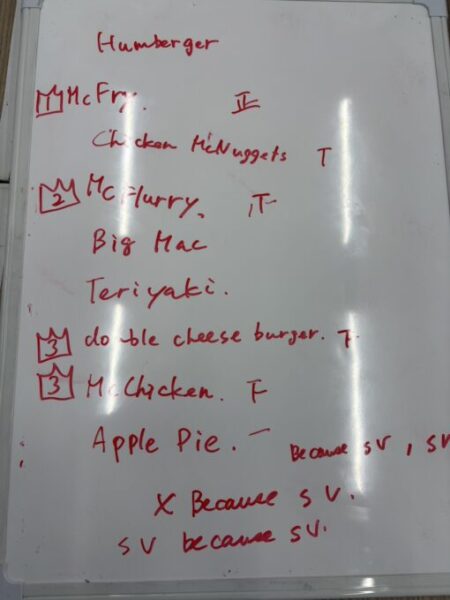 Humberger
1 McFry. 正
Chicken McNuggets T
2 McFlurry. 下
Big Mac
Teriyaki.
3 double cheese burger. 下
3 McChicken. 下
Apple Pie. 一
Because S V , SV
X Because S V.
SV because SV.